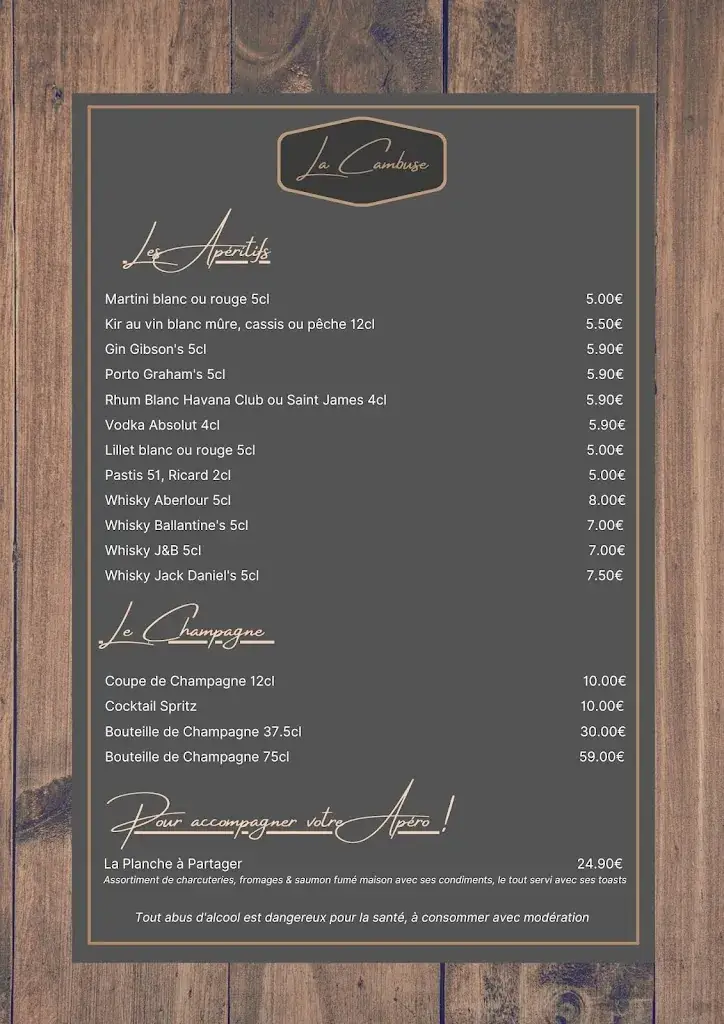 La Cambuse
Les Apéritifs
Martini blanc ou rouge 5cl 5.00€
Kir au vin blanc mûre, cassis ou pêche 12cl 5.50€
Gin Gibson's 5cl 5.90€
Porto Graham's 5cl 5.90€
Rhum Blanc Havana Club ou Saint James 4cl 5.90€
Vodka Absolut 4cl 5.90€
Lillet blanc ou rouge 5cl 5.00€
Pastis 51, Ricard 2cl 5.00€
Whisky Aberlour 5cl 8.00€
Whisky Ballantine's 5cl 7.00€
Whisky J&B 5cl 7.00€
Whisky Jack Daniel's 5cl 7.50€
Le Champagne
Coupe de Champagne 12cl 10.00€
Cocktail Spritz 10.00€
Bouteille de Champagne 37.5cl 30.00€
Bouteille de Champagne 75cl 59.00€
Pour accompagner votre Apéro !
La Planche à Partager 24.90€
Assortiment de charcuteries, fromages & saumon fumé maison avec ses condiments, le tout servi avec ses toasts
Tout abus d'alcool est dangereux pour la santé, à consommer avec modération